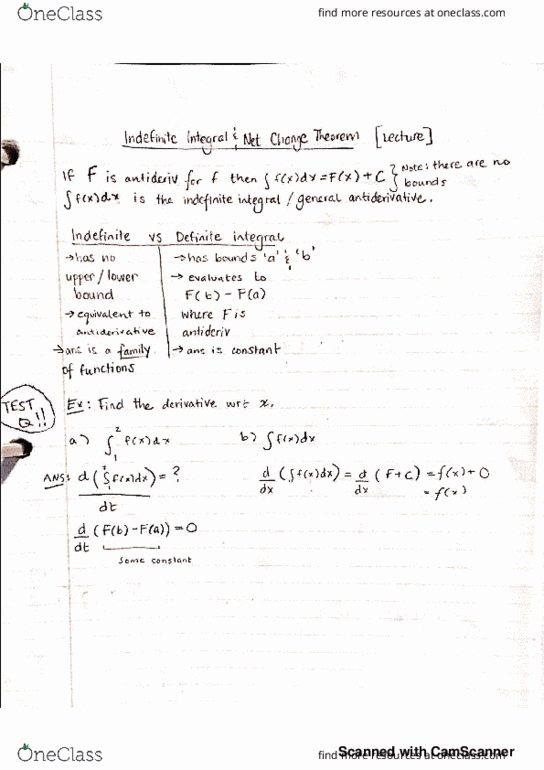 OneClass
find more resources at oneclass.com
Indefinite Integral & Net Change Theorem [Lecture]
If F is antideriv for f then ∫f(x)dx = F(x) + C } Note: there are no bounds
∫f(x)dx is the indefinite integral / general antiderivative.
Indefinite vs Definite integral
→has no upper/lower bound
→ equivalent to antiderivative
→ans is a family of functions
→has bounds 'a' & 'b'
→ evaluates to
F(b) - F(a)
where F is
antideriv
→ ans is constant
TEST Q!!
Ex: Find the derivative wrt x.
a) ∫₁² f(x)dx
b) ∫f(x)dx
ANS: d(∫₁² f(x)dx) = ?
dt
d/dx (∫f(x)dx) = d/dx (F+C) = f(x) + 0
= f(x)
d/dt (F(b) - F(a)) = 0
some constant
OneClass
find more resources at oneclass.com
Scanned with CamScanner